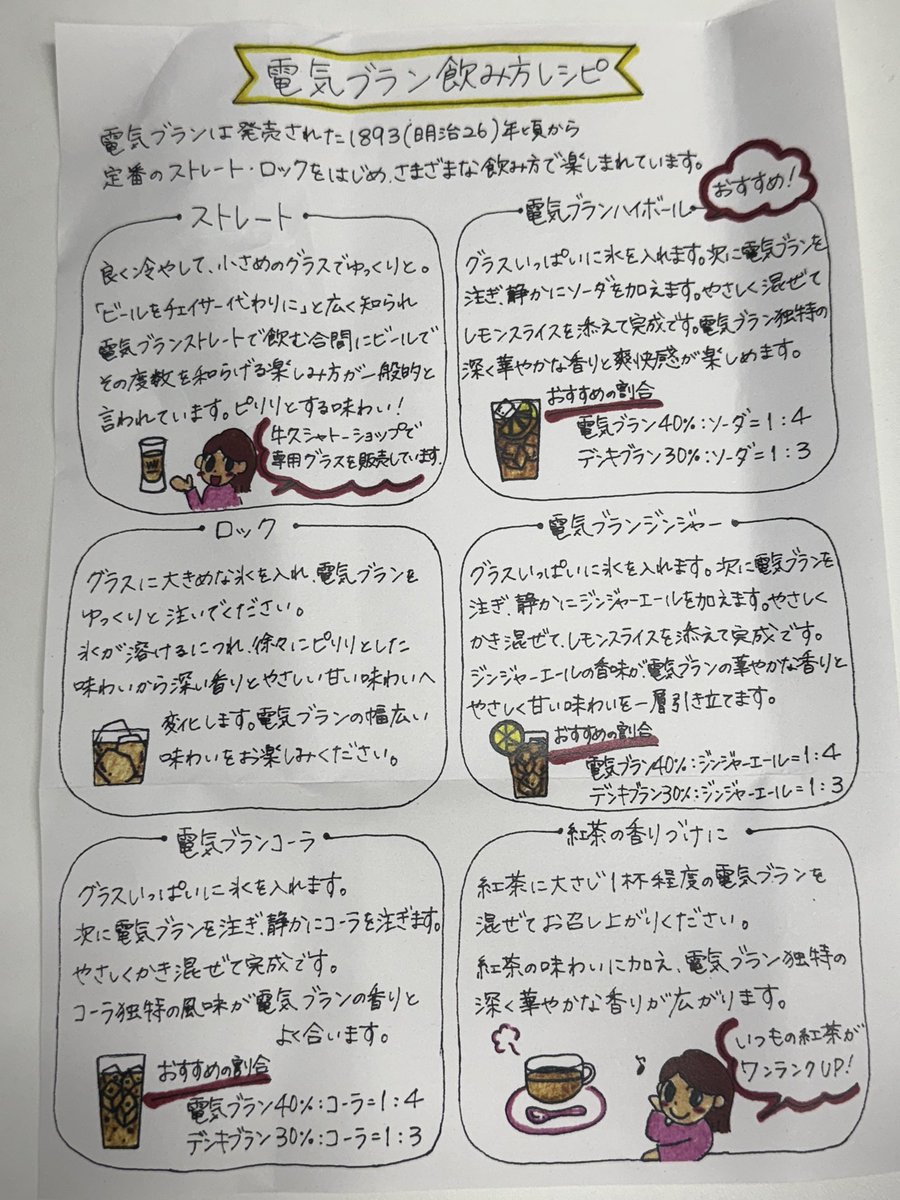 電気ブラン飲み方レシピ
電気ブランは発売された1893(明治26)年頃から
定番のストレート・ロックをはじめ、さまざまな飲み方で楽しまれています。
ストレート
良く冷やして、小さめのグラスでゆっくりと。
「ビールをチェイサー代わりに」と広く知られ
電気ブランストレートで飲む合間にビールで
その度数を和らげる楽しみ方が一般的と
言われています。ピリリとする味わい!
牛久シャトーショップで
専用グラスを販売しています。
おすすめ!
電気ブランハイボール
グラスいっぱいに氷を入れます。次に電気ブランを
注ぎ、静かにソーダを加えます。やさしく混ぜて
レモンスライスを添えて完成です。電気ブラン独特の
深く華やかな香りと爽快感が楽しめます。
おすすめの割合
電気ブラン40%:ソーダ=1:4
デンキブラン30%:ソーダ=1:3
ロック
グラスに大きめな氷を入れ、電気ブランを
ゆっくりと注いでください。
氷が溶けるにつれ、徐々にピリリとした
味わいから深い香りとやさしい甘い味わいへ
変化します。電気ブランの幅広い
味わいをお楽しみください。
電気ブランジンジャー
グラスいっぱいに氷を入れます。次に電気ブランを
注ぎ、静かにジンジャーエールを加えます。やさしく
かき混ぜて、レモンスライスを添えて完成です。
ジンジャーエールの香味が、電気ブランの華やかな香りと
やさしく甘い味わいを一層引き立てます。
おすすめの割合
電気ブラン40%:ジンジャーエール=1:4
デンキブラン30%:ジンジャーエール=1:3
電気ブランコーラ
グラスいっぱいに氷を入れます。
次に電気ブランを注ぎ、静かにコーラを注ぎます。
やさしくかき混ぜて完成です。
コーラ独特の風味が電気ブランの香りと
よく合います。
おすすめの割合
電気ブラン40%:コーラ=1:4
デンキブラン30%:コーラ=1:3
紅茶の香りづけに
紅茶に大さじ1杯程度の電気ブランを
混ぜてお召し上がりください。
紅茶の味わいに加え、電気ブラン独特の
深く華やかな香りが広がります。
いつもの紅茶が
ワンランクUP!